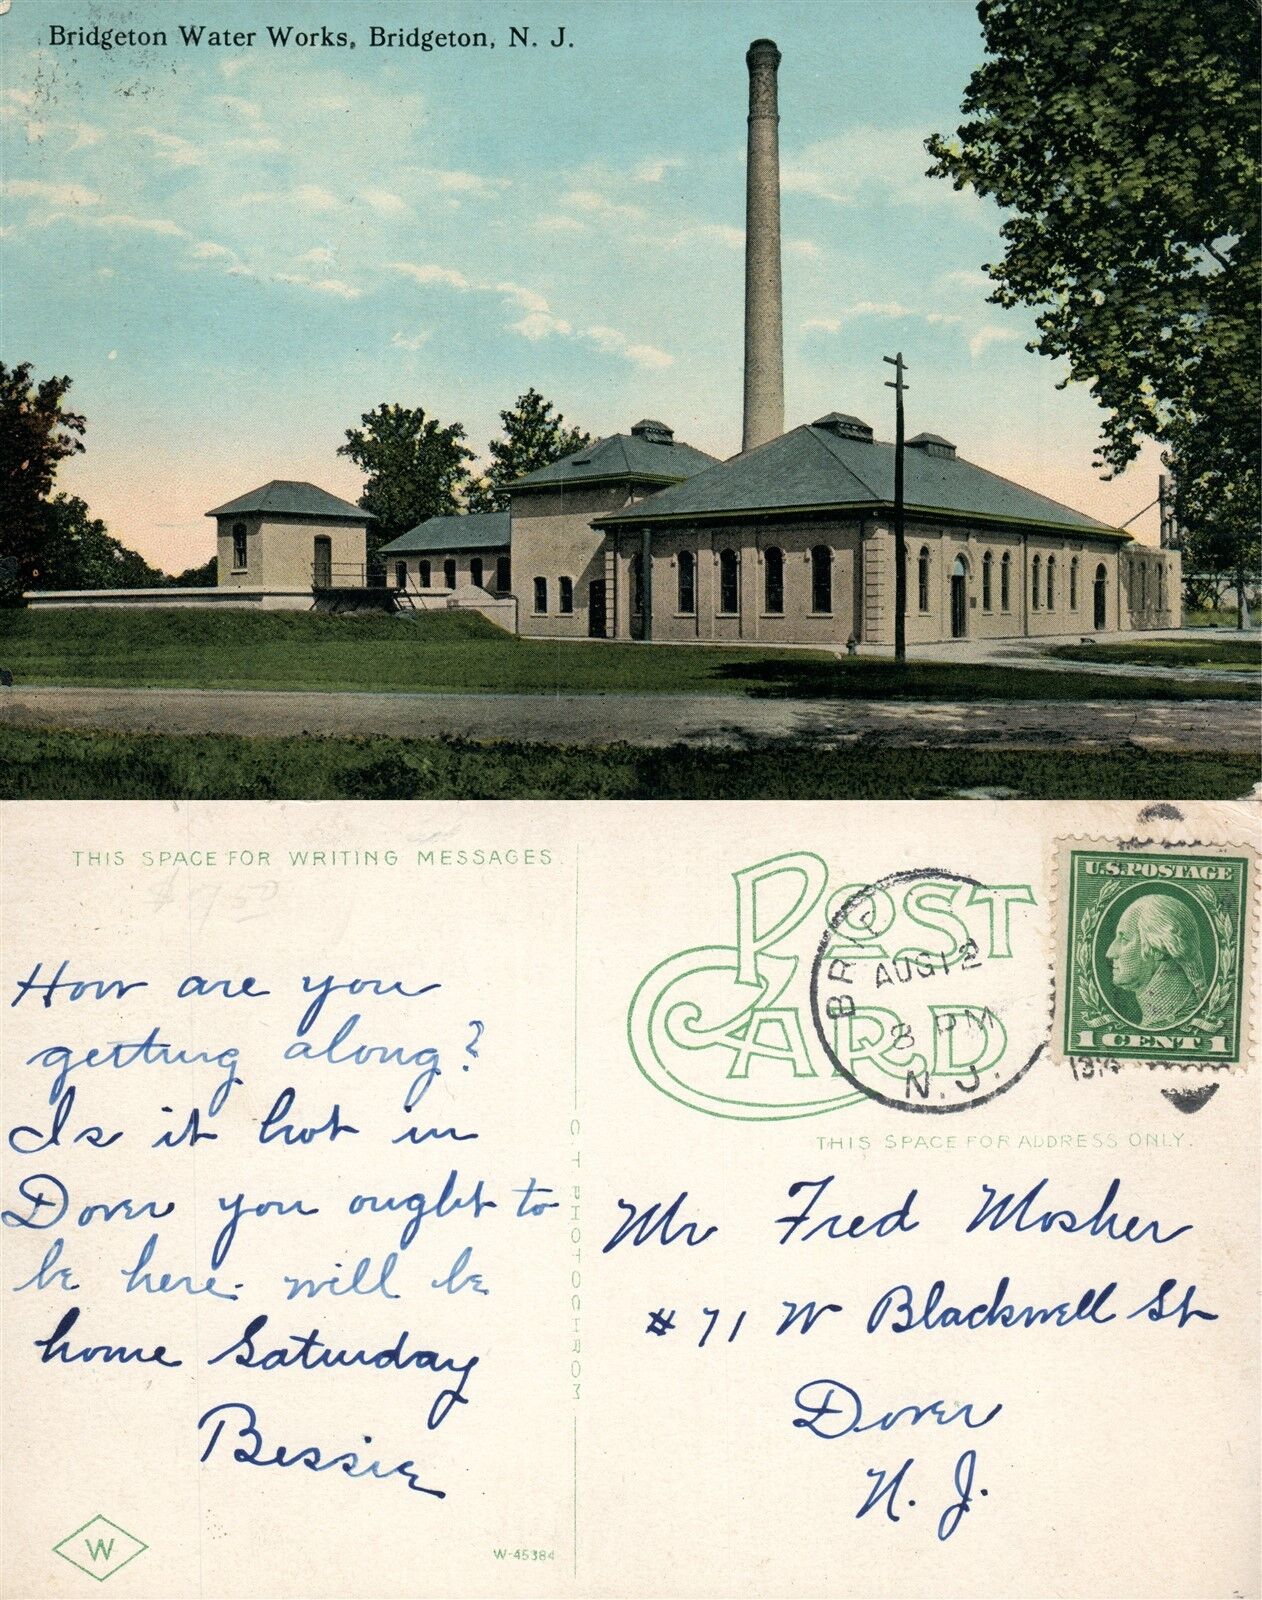 Bridgeton Water Works, Bridgeton, N. J.
THIS SPACE FOR WRITING MESSAGES.
How are you
getting along?
Is it hot in
Dover you ought to
be here. will be
home Saturday
Bessie
W
W-45384
C T PHOTOCHROM
POST CARD
AUG 12
8 PM
N. J.
U.S. POSTAGE
1 CENT 1
THIS SPACE FOR ADDRESS ONLY.
Mr Fred Mosher
# 71 W Blackwell St
Dover
N. J.